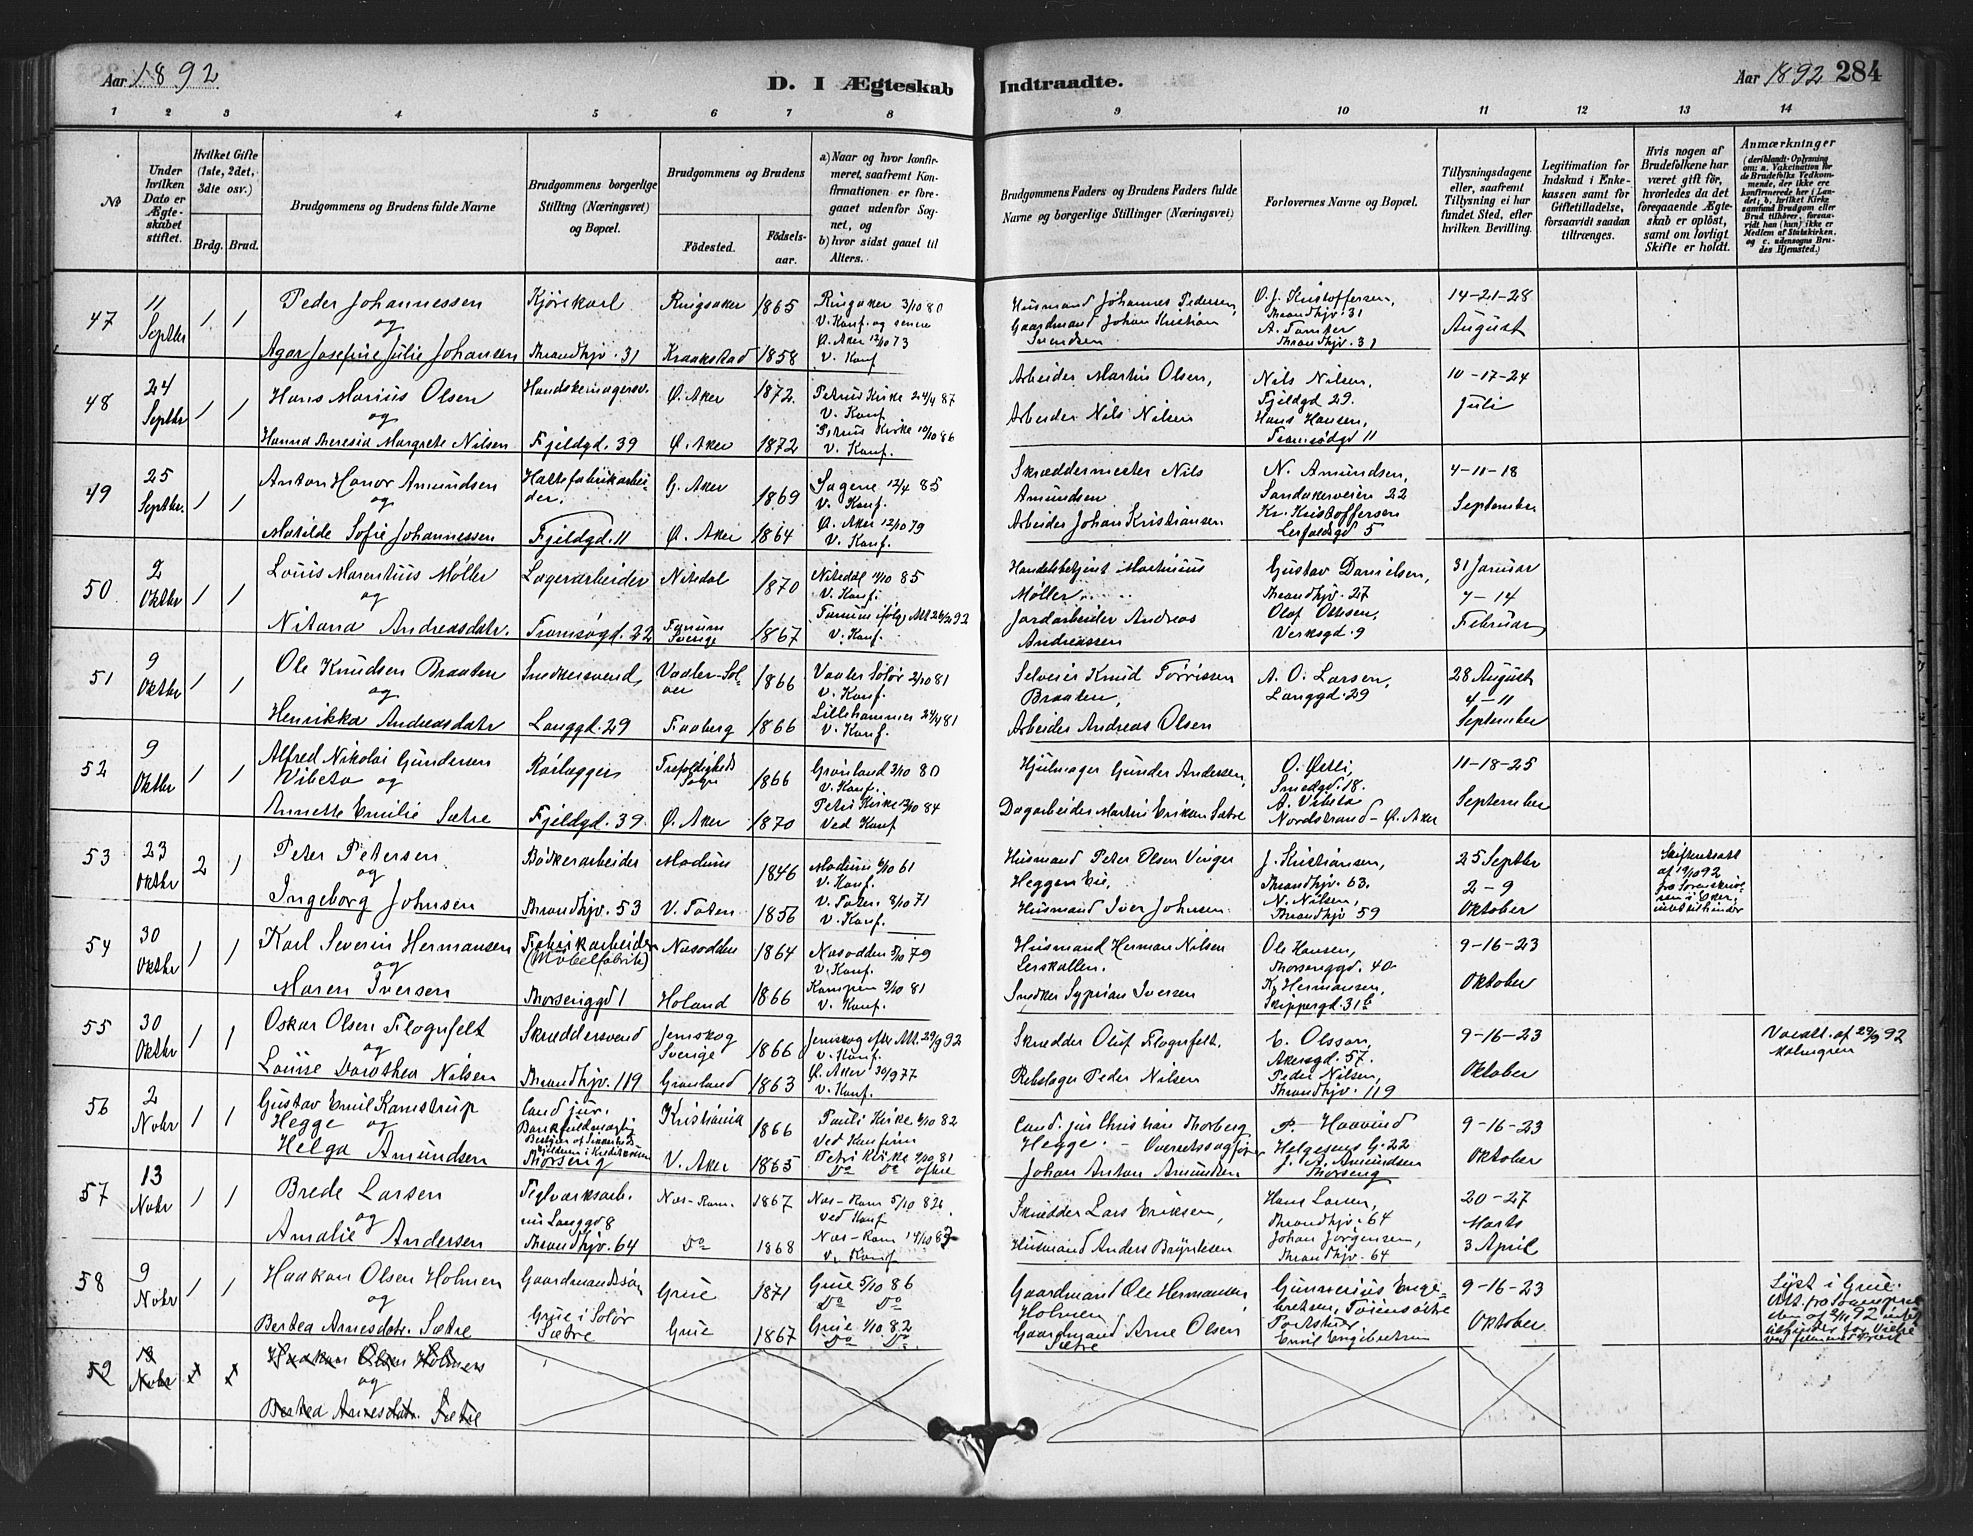 Aar 1892
D. I Ægteskab
Indtraadte.
Aar 1892 284
1 2 3 4 5 6 7 8 9 10 11 12 13 14
No
Under hvilken Dato er Ægteskabet stiftet.
Hvilket Gifte (1ste, 2det, 3die osv.)
Brdg. Brud.
Brudgommens og Brudens fulde Navne
Brudgommens borgerlige Stilling (Næringsvei) og Bopæl.
Brudgommens og Brudens
Fødested.
Fødselsaar.
a) Naar og hvor konfirmeret, saafremt Konfirmationen er foregaaet udenfor Sognet, og
b) hvor sidst gaaet til Alters.
Brudgommens Faders og Brudens Faders fulde Navne og borgerlige Stillinger (Næringsvei)
Forlovernes Navne og Bopæl.
Tillysningsdagene eller, saafremt Tillysning ei har fundet Sted, efter hvilken Bevilling.
Legitimation for Indskud i Enkekassen samt for Giftetilladelse, forsaavidt saadan tiltrænges.
Hvis nogen af Brudefolkene har været gift før, hvorledes da det foregaaende Ægteskab er opløst, samt om lovligt Skifte er holdt.
Anmærkninger
(deriblandt Oplysning om: a. Vakcination for de Brudefolks Vedkommende, der ikke ere konfirmerede her i Landet; b. hvilket Kirkesamfund Brudgom eller Brud tilhører, forsaavidt han (hun) ikke er Medlem af Statskirken, og c. udensogns Brudes Hjemsted.)
47 11 Septbr 1 1
Peder Johannessen
og
Agar Josefine Julie Johansen
Kjørekarl
Throndhjv. 31
Ringsaker 1865
Kraakstad 1858
Ringsaker 3/10 80
V. Konf. og senere
Ø. Aker 12/10 73
V. Konf
Husmand Johannes Pedersen,
Gaardmand Johan Kristian
Svendsen
O. J. Kristoffersen,
Throndhjv. 31
A. Tomter
Throndhjv. 31
14-21-28
August
48 24 Septbr 1 1
Hans Marius Olsen
og
Hanna Theresia Margrete Nilsen
Handskemagersv.
Fjeldgd. 39
Ø. Aker 1872
Ø. Aker 1872
Petrus Kirke 24/4 87
V. Konf
Petrus Kirke 10/10 86
V. Konf.
Arbeider Martin Olsen,
Arbeider Nils Nilsen
Nils Nilsen,
Fjeldgd 29.
Hans Hansen,
Tromsøgd 11
10-17-24
Juli
49 25 Septbr. 1 1
Anton Honor Amundsen
og
Matilde Sofie Johannessen
Hattefabrikarbeider.
Fjeldgd. 11
G. Aker 1869
Ø. Aker 1864
Sagene 12/4 85
V. Konf.
Ø. Aker 12/10 79
V. Konf.
Skræddermester Nils
Amundsen
Arbeider Johan Kristiansen
N. Amundsen,
Sandakerveien 22
Kr. Kristoffersen
Lerfaldsgd 5
4-11-18
September
50 2 Oktbr 1 1
Louis Marentius Møller
og
Nitana Andreasdatr.
Lagerarbeider
Tromsøgd. 22
Nitedal 1870
Sverige 1867
Nitedal 11/10 85
V. Konf.
V. Konf.
Handelsbetjent Martinius
Møller
Jordarbeider Andreas
Andreassen
Gustav Danielsen,
Throndhjv. 27
Olaf Ottesen,
Verksgd. 9
31 Januar
7-14
Februar
51 9 Oktbr 1 1
Ole Knudsen Braaten
og
Henrikka Andreasdatr
Snedkersvend
Langgd. 29
Vaaler-Solør 1866
Faaberg 1866
Vaaler Solør 2/10 81
V. Konf.
Lillehammer 24/4 81
V. Konf.
Selveier Knud Torrissen
Braaten,
Arbeider Andreas Olsen
A. O. Larsen,
Langgd. 29
28 August
4-11
September
52 9 Oktbr 1 1
Alfred Nikolai Gundersen
Vibeto og
Annette Emilie Sætre
Rørlægger
Fjeldgd. 39.
Trefoldigheds Sogn 1866
Ø. Aker 1870
Grønland 3/10 80
V. Konf.
Petri Kirke 12/10 84
Ved Konf
Hjulmager Gunder Andersen,
Dagarbeider Martin Eriksen Sætre
O. Østli,
Smedgd. 18.
A. Vibeto
Nordstrand - Ø. Aker
11-18-25
September
53 23 Oktbr 2 1
Peter Petersen
og
Ingeborg Johnsen
Bødkerarbeider
Throndhjv. 53
Modum 1846
V. Toten 1856
Modum 6/10 61
V. Konf.
V. Toten 8/10 71
V. Konf.
Husmand Peter Olsen Vinger
Heggen Eie,
Husmand Iver Johnsen
J. Kristiansen,
Throndhjv. 63.
N. Nilsen,
Throndhjv 59
25 Septbr
2-9
Oktober
Skifteattest
af 19/10 92
fra Sorenskriveren i Eker,
intet tilhinder
54 30 Oktbr 1 1
Karl Severin Hermansen
og
Maren Iversen
Fabrikarbeider
(Møbelfabrik)
Thorsenggd 1
Næsodden 1864
Høland 1866
Næsodden 5/10 79
V. Konf.
Kampen 9/10 81
V. Konf.
Husmand Herman Nilsen
Lerskallen.
Snedker Syprian Iversen
Ole Hansen,
Thorsenggd. 40
K. Hermansen,
Skippergd. 31b
9-16-23
Oktober
55 30 Oktbr 1 1
Oskar Olsen Flognfelt
og
Louise Dorothea Nilsen
Skræddersvend
Throndhjv. 119
Jernskog Sverige 1866
Grønland 1863
Jernskog efter Att. 29/9 92
V. Konf.
Ø. Aker 30/9 77
V. Konf.
Skrædder Oluf Flognfelt.
Rebslager Peder Nilsen
E. Olsson,
Akersgd. 57.
Peder Nilsen,
Throndhjv. 119
9-16-23
Oktober
Vacatt. af 29/9 92
Malmgren
56 2 Novbr 1 1
Gustav Emil Kamstrup
Hegge og
Helga Amundsen
Cand. jur.
Thorseng
Kristiania 1866
V. Aker 1865
Pauli Kirke 6/10 82
Ved Konfirm
Petri Kirke 9/10 81
Do Do oftere
Cand. jur Christian Thorberg
Hegge. - Overretssagfører
Johan Anton Amundsen
P. Haavind
Helgesens G. 22
J. A. Amundsen
Thorseng
9-16-23
Oktober
57 13 Novbr 1 1
Brede Larsen
og
Amalie Andersen
Teglværksarb.
Langgd 8
Throndhjv. 64
Næs-Rom. 1867
Do 1868
Næs-Rom 5/10 82
Ved Konf
Næs-Rom 14/10 83
V. Konf
Skrædder Lars Eriksen,
Husmand Anders Brynilsen
Hans Larsen,
Throndhjv. 64
Johan Jørgensen,
Throndhjv. 64
20-27
Marts
3 April
58 9 Novbr 1 1
Haakon Olsen Holmen
og
Berthea Arnesdatr. Sætre
Gaardmandssøn
Grue i Solør
Sætre
Grue 1871
Grue 1867
Grue 5/10 86
Do Do
Grue 1/10 82
Do Do
Gaardmand Ole Hermansen
Holmen
Gaardmand Arne Olsen
Sætre
Gunnerius Engebretsen, Tøiensøtre
Emil Engebretsen
9-16-23
Oktober
Lyst i Grue.
59 13 Novbr 1 1
Haakon Olsen Holmen
og
Berthea Arnesdatr. Sætre